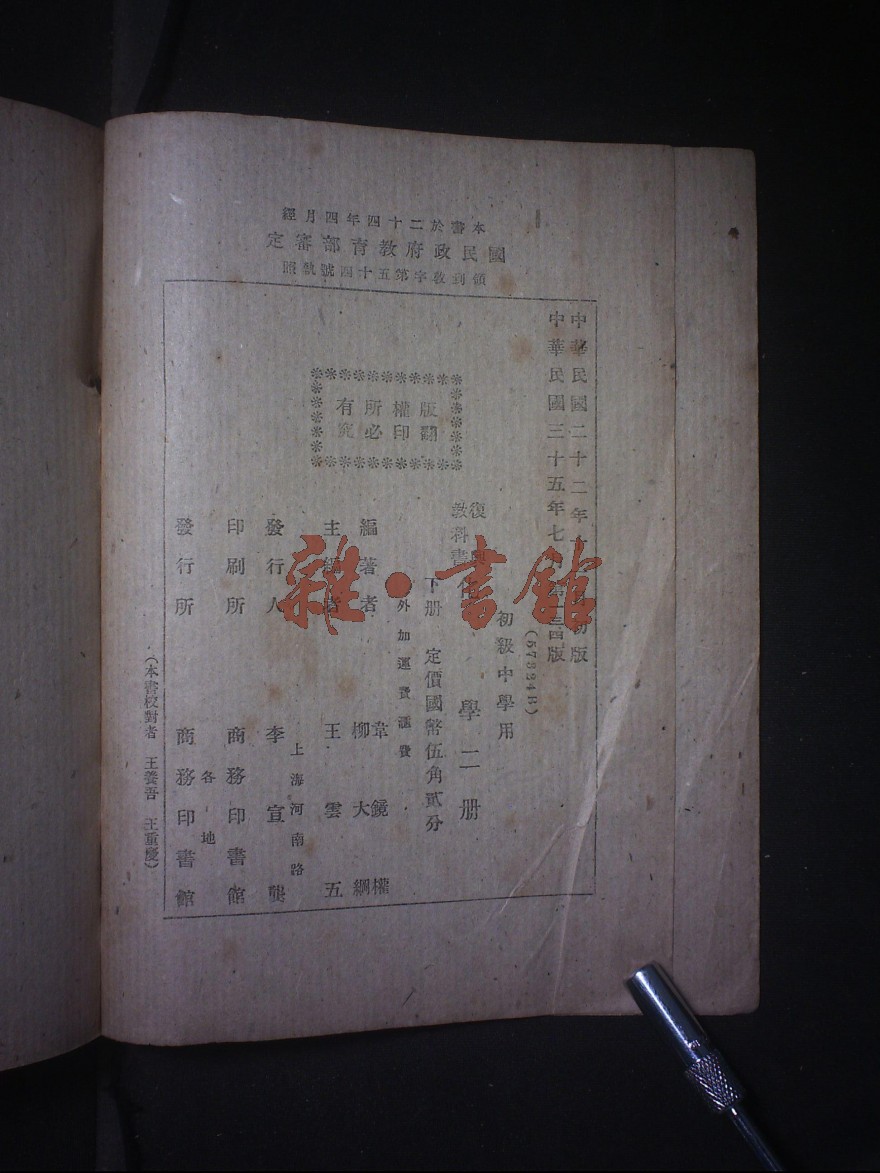 本書於二十四年四月經
國民政府教育部審定
領到教字第五十四號執照
中華民國二十二年 初版
中華民國三十五年七 版
(57334B)
初級中學用
復興
教科書 學二册
下册 定價國幣伍角貳分
外加運費滙費
版權所有
翻印必究
編著者 韋鏡權
柳大綱
主編者 王雲五
上海河南路
發行人 李宣龔
印刷所 商務印書館
各地
發行所 商務印書館
(本書校對者 王養吾 王重慶)
雜·書館